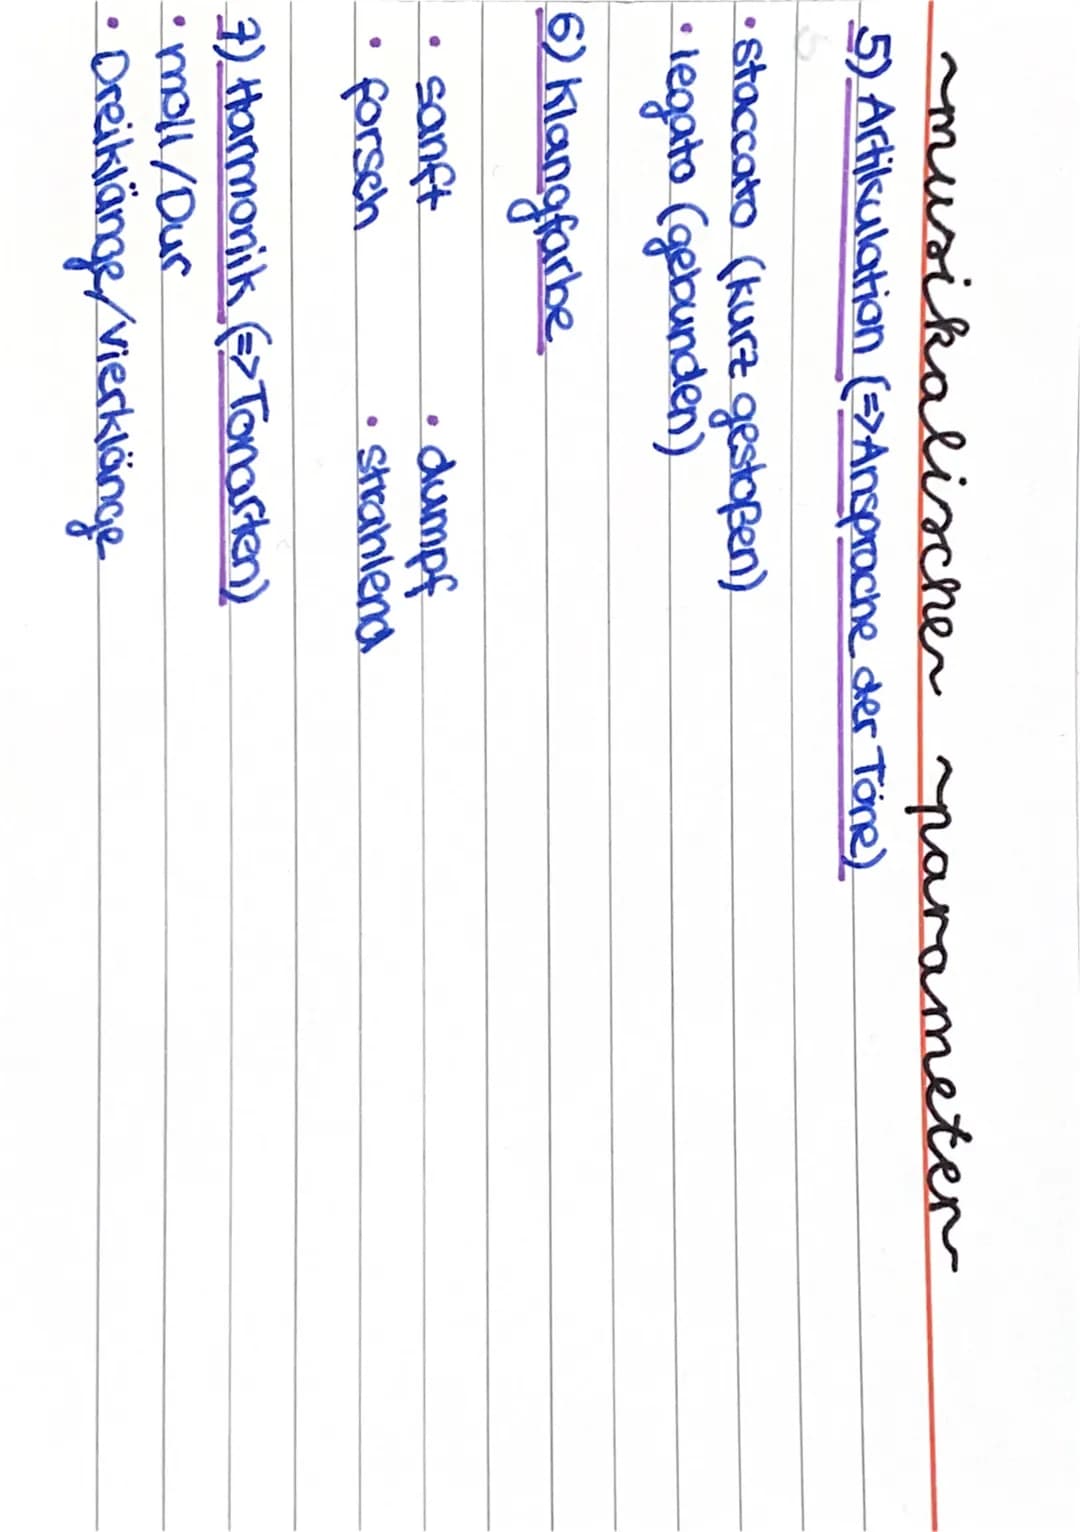 musikalischer parameter
5) Artikulation (=>Ansprache der Töne)
• staccato (kurz gestoßen)
• legato (gebunden)
6) Klangfarbe
• sanft • dumpf
• forsch • strahlend
7) Harmonik (=>Tonarten)
• moll/Dur
• Dreiklänge/Vierklänge